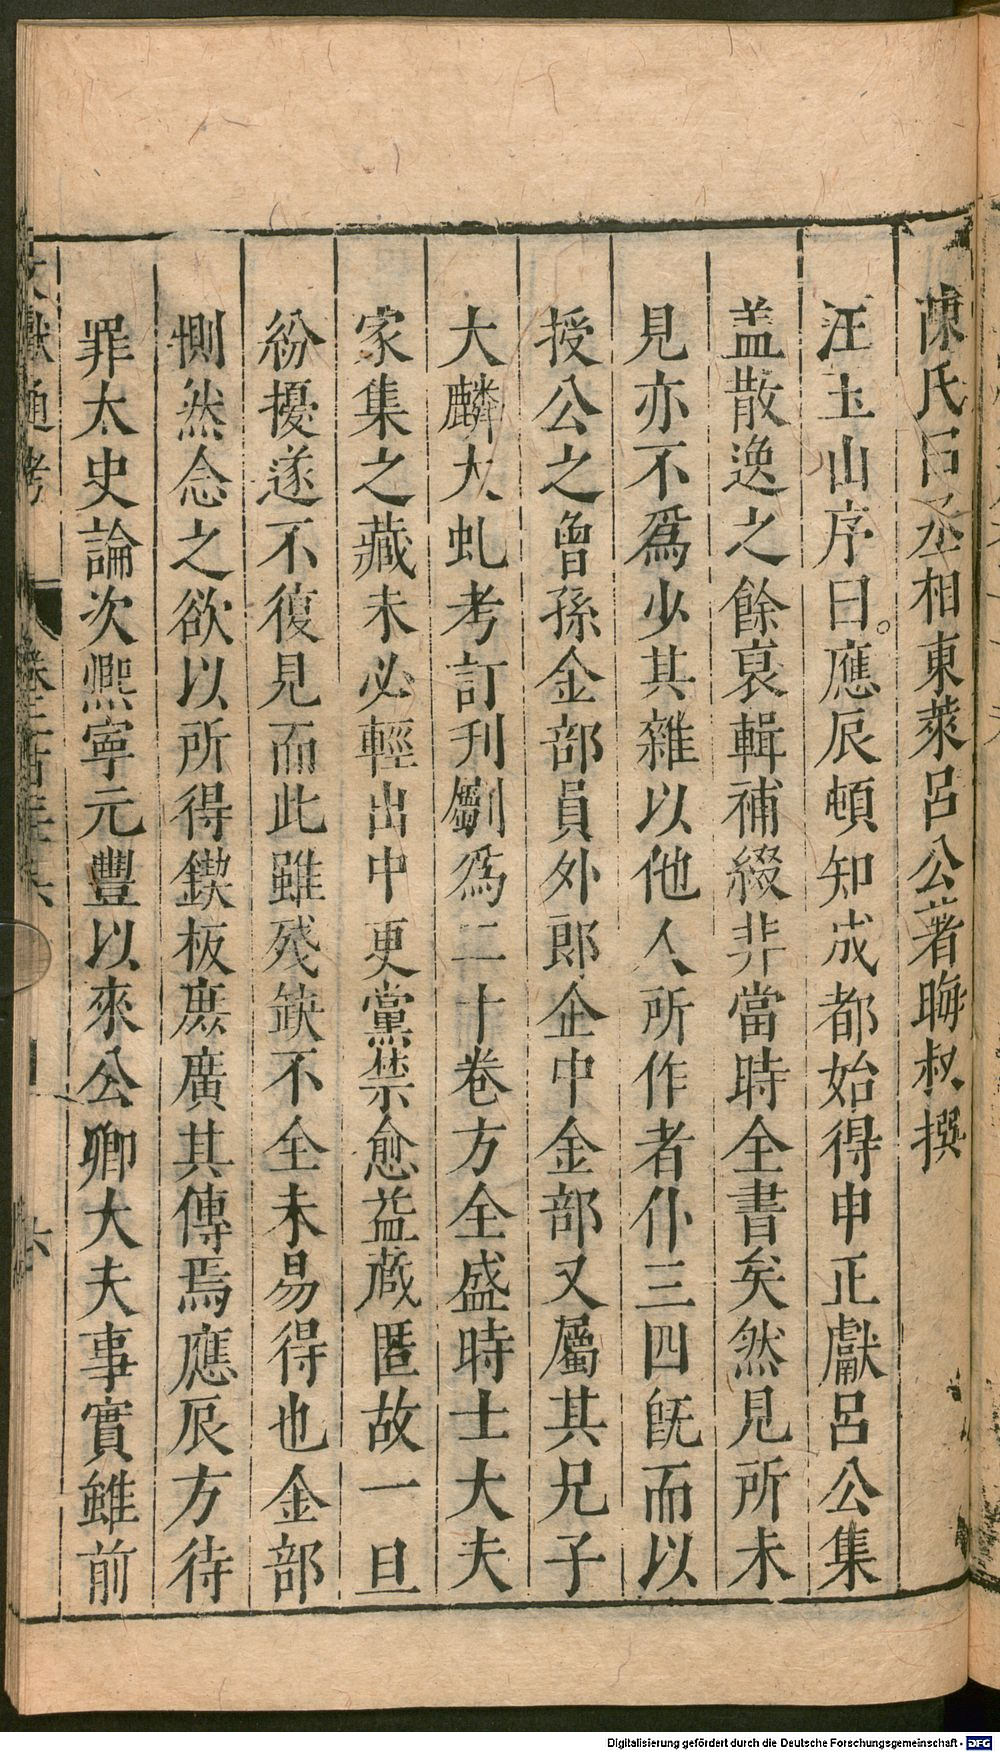 陳氏曰丞相東萊呂公著晦叔撰
汪玉山序曰應辰頓知成都始得申正獻呂公集
盖散逸之餘裒輯補綴非當時全書矣然見所未
見亦不爲少其雜以他人所作者什三四旣而以
授公之曾孫金部員外郎企中金部又屬其兄子
大麟大虬考訂刋劘爲二十卷方全盛時士大夫
家集之藏未必輕出中更黨禁愈益蔵匿故一旦
紛擾遂不復見而此雖殘缺不全未易得也金部
惻然念之欲以所得鍥板庶廣其傳焉應辰方待
罪太史論次熈寧元豐以來公卿大夫事實雖前
文獻通考 六
Digitalisierung gefördert durch die Deutsche Forschungsgemeinschaft - DFG